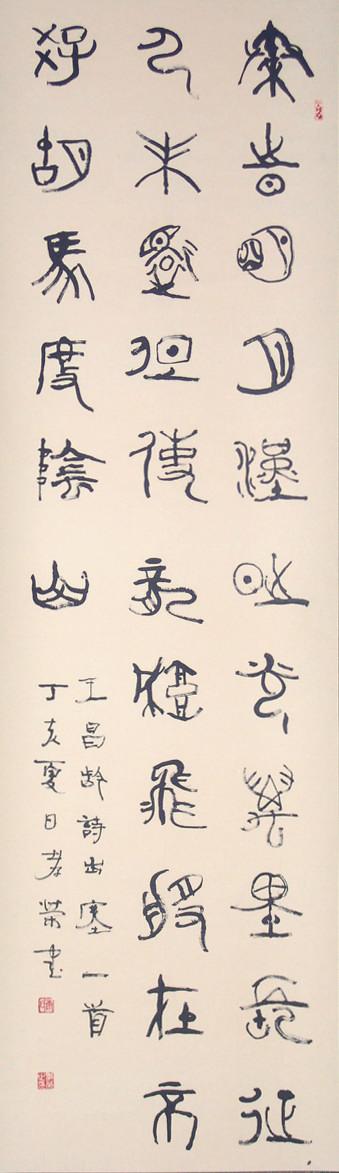 秦時明月漢時關萬里長征
人未還但使龍城飛將在不
教胡馬度陰山
王昌齡詩出塞一首
丁亥夏日孝榮書